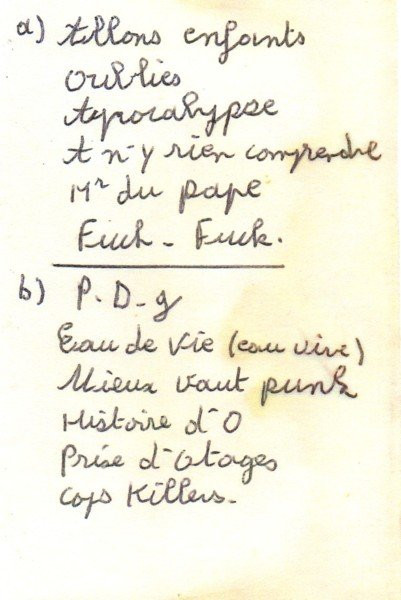 a) Allons enfants
oublies
Apocalypse
A n'y rien comprendre
Mr du pape
Fuck - Fuck.
b) P. D. g
Eau de Vie (eau vive)
Mieux vaut punk
Histoire d'O
Prise d'Otages
Cops Killers.